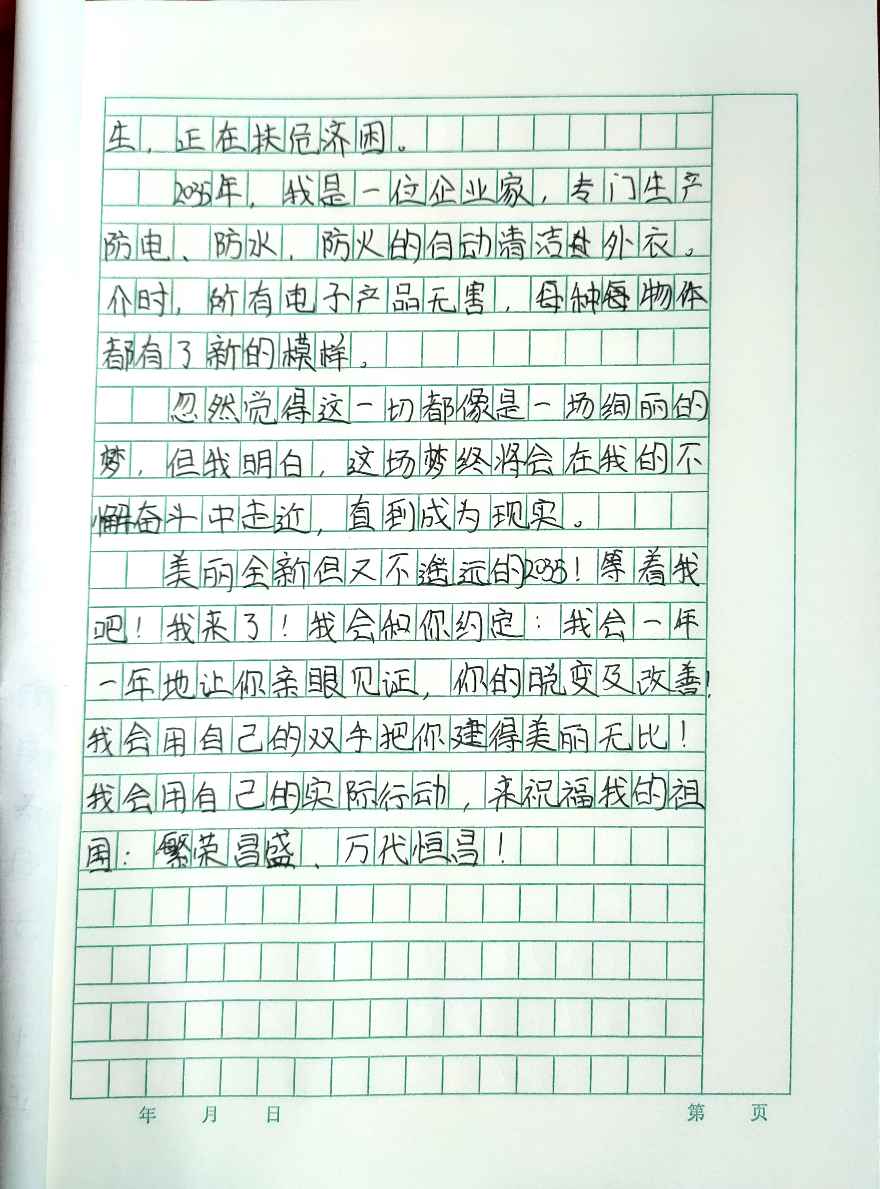 生，正在扶危济困。
2035年，我是一位企业家，专门生产
防电、防水、防火的自动清洁外衣。
介时，所有电子产品无害，每种物体
都有了新的模样。
忽然觉得这一切都像是一场绚丽的
梦，但我明白，这场梦终将会在我的不
懈奋斗中走近，直到成为现实。
美丽全新但又不遥远的2035！等着我
吧！我来了！我会和你约定：我会一年
一年地让你亲眼见证，你的脱变及改善！
我会用自己的双手把你建得美丽无比！
我会用自己的实际行动，来祝福我的祖
国：繁荣昌盛、万代恒昌！
年 月 日 第 页